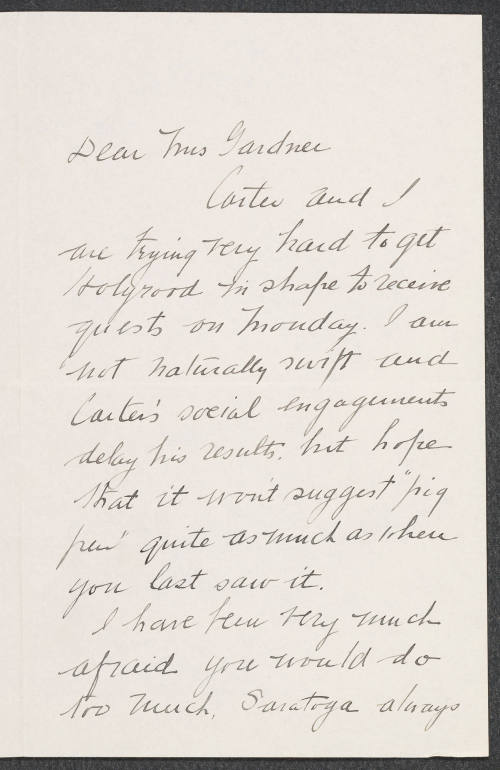 Dear Mrs Gardner
Carter and I
are trying very hard to get
Holyrood in shape to receive
guests on Monday. I am
not naturally swift and
Carter's social engagements
delay his results. but hope
that it won't suggest "pig
pen" quite as much as when
you last saw it.
I have been very much
afraid you would do
too much. Saratoga always